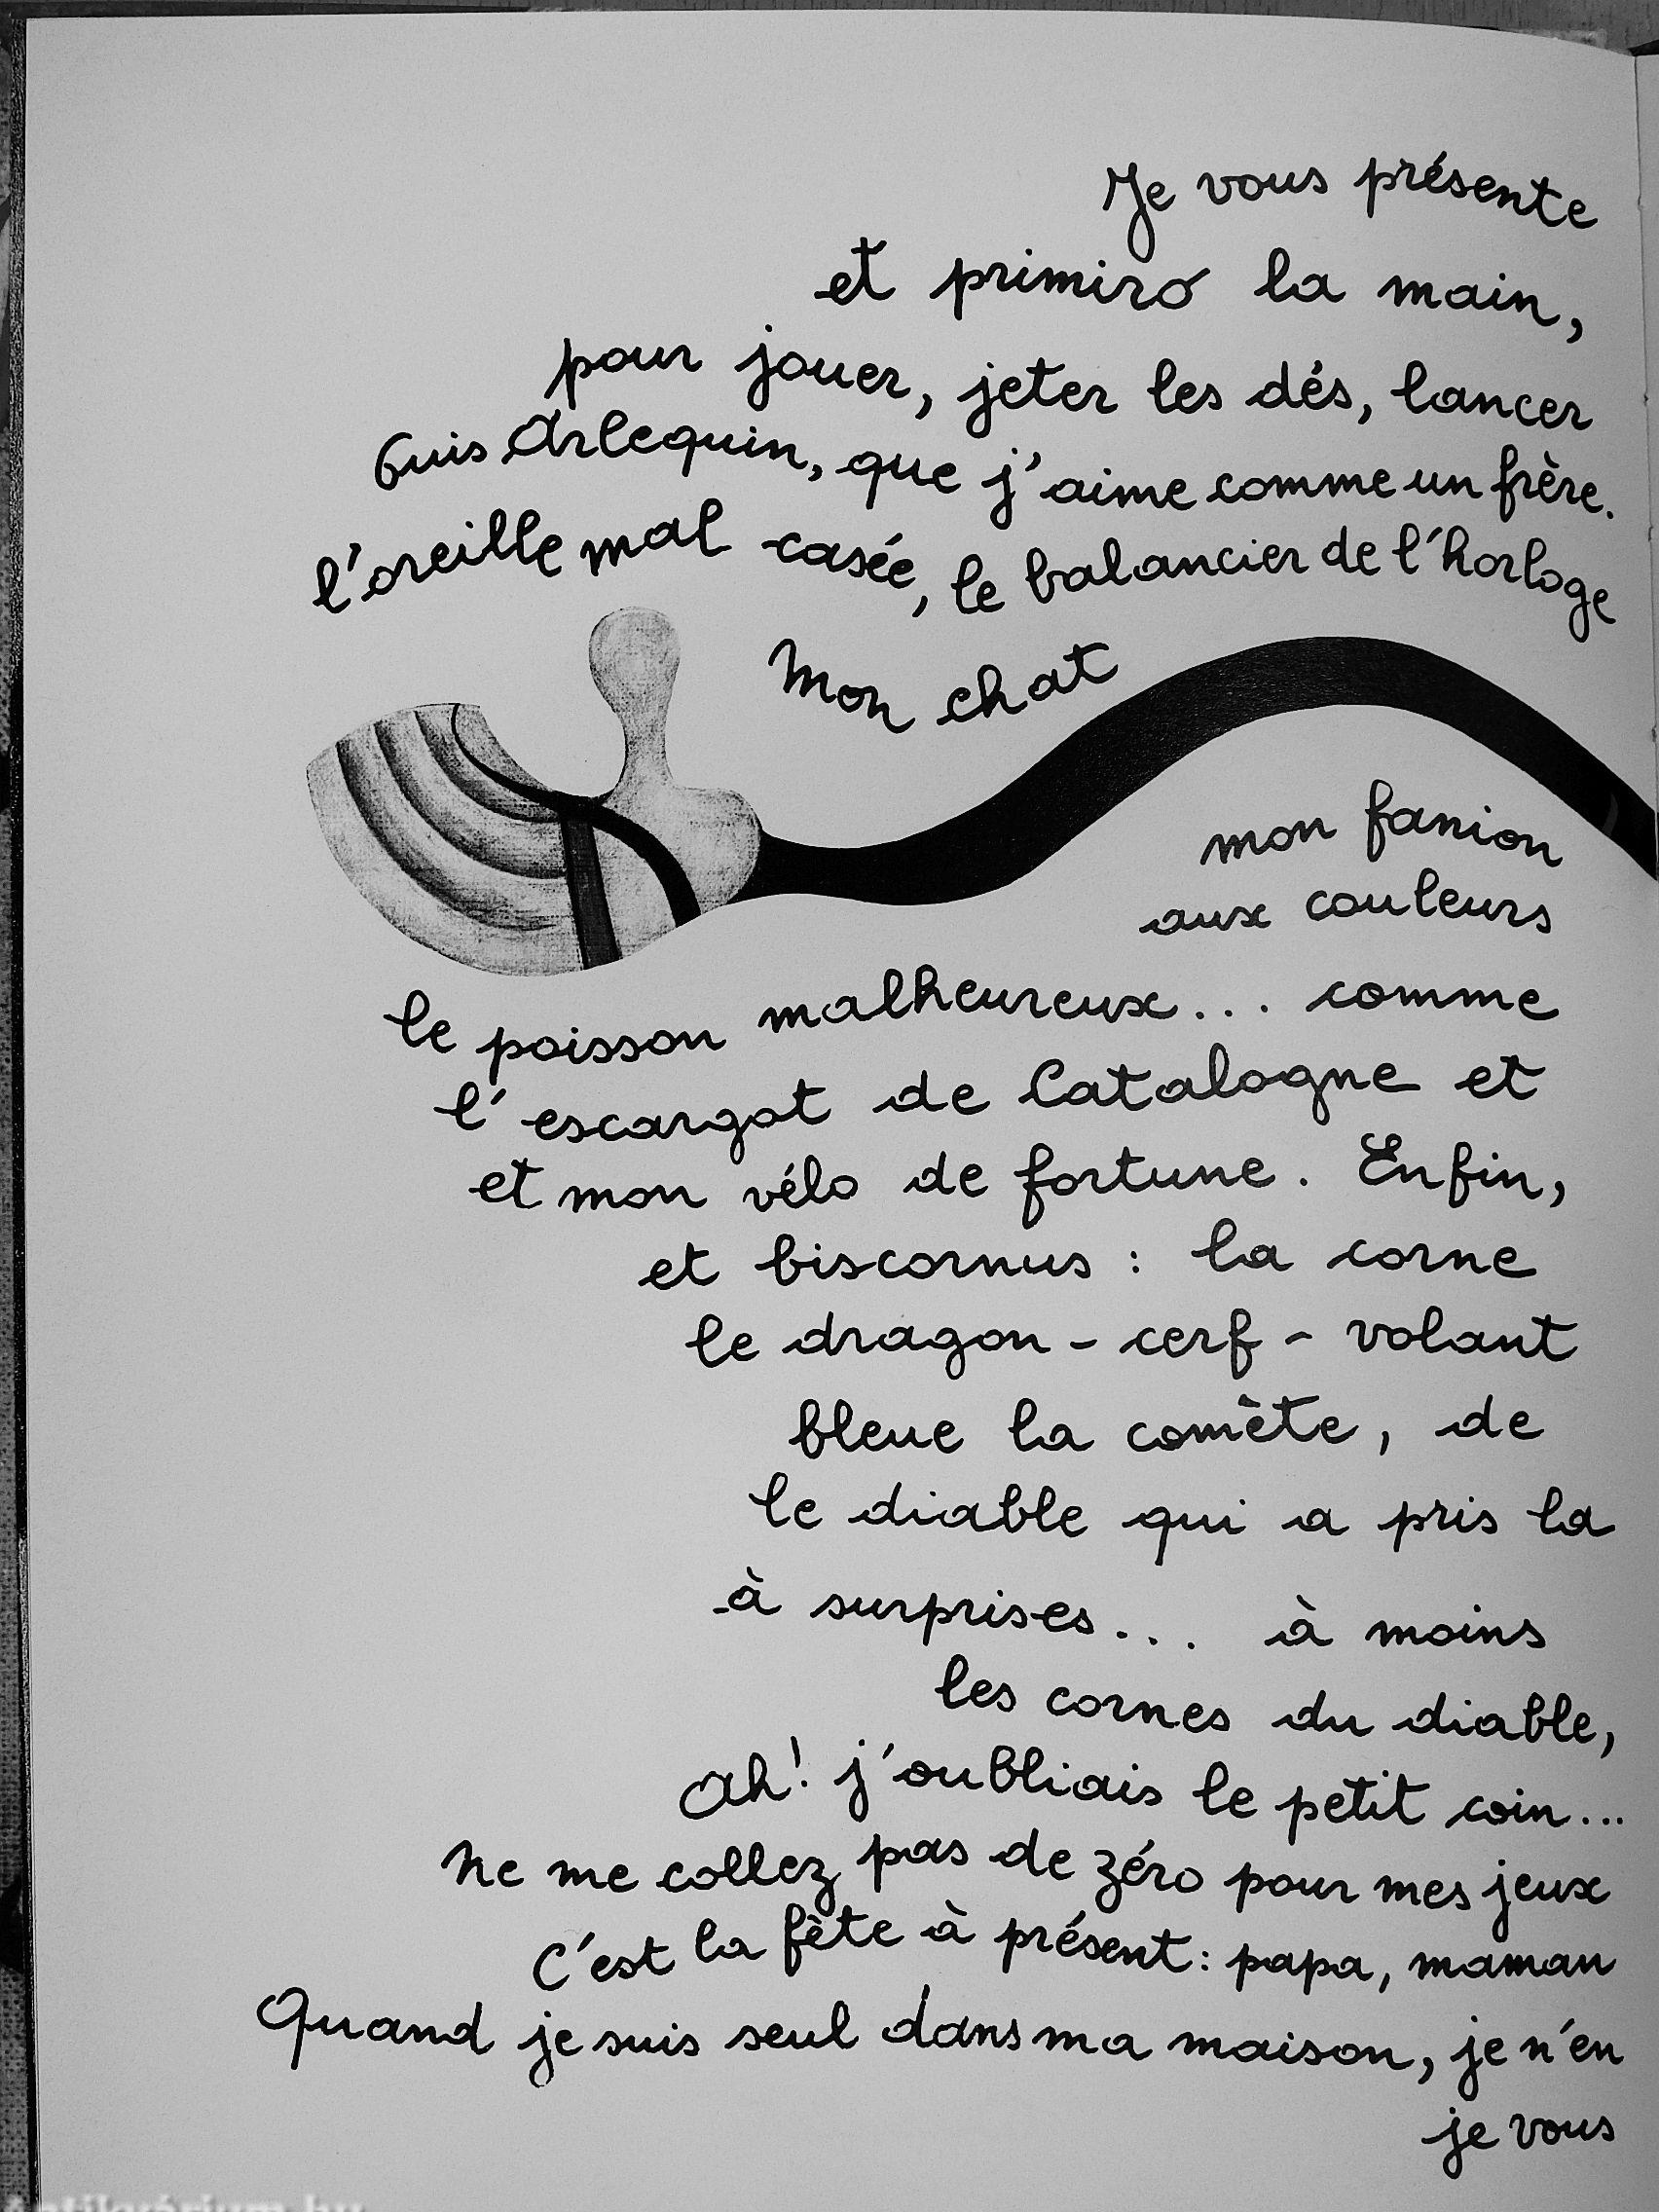 Je vous présente
et primiro la main,
pour jouer, jeter les dés, lancer
Puis Arlequin, que j'aime comme un frère.
l'oreille mal casée, le balancier de l'horloge
Mon chat
mon fanion
aux couleurs
le poisson malheureux... comme
l'escargot de Catalogne et
et mon vélo de fortune. Enfin,
et biscornus : la corne
le dragon-cerf-volant
bleue la comète, de
le diable qui a pris la
à surprises... à moins
les cornes du diable,
Ah! j'oubliais le petit coin...
Ne me collez pas de zéro pour mes jeux
C'est la fète à présent : papa, maman
Quand je suis seul dans ma maison, je n'en
je vous